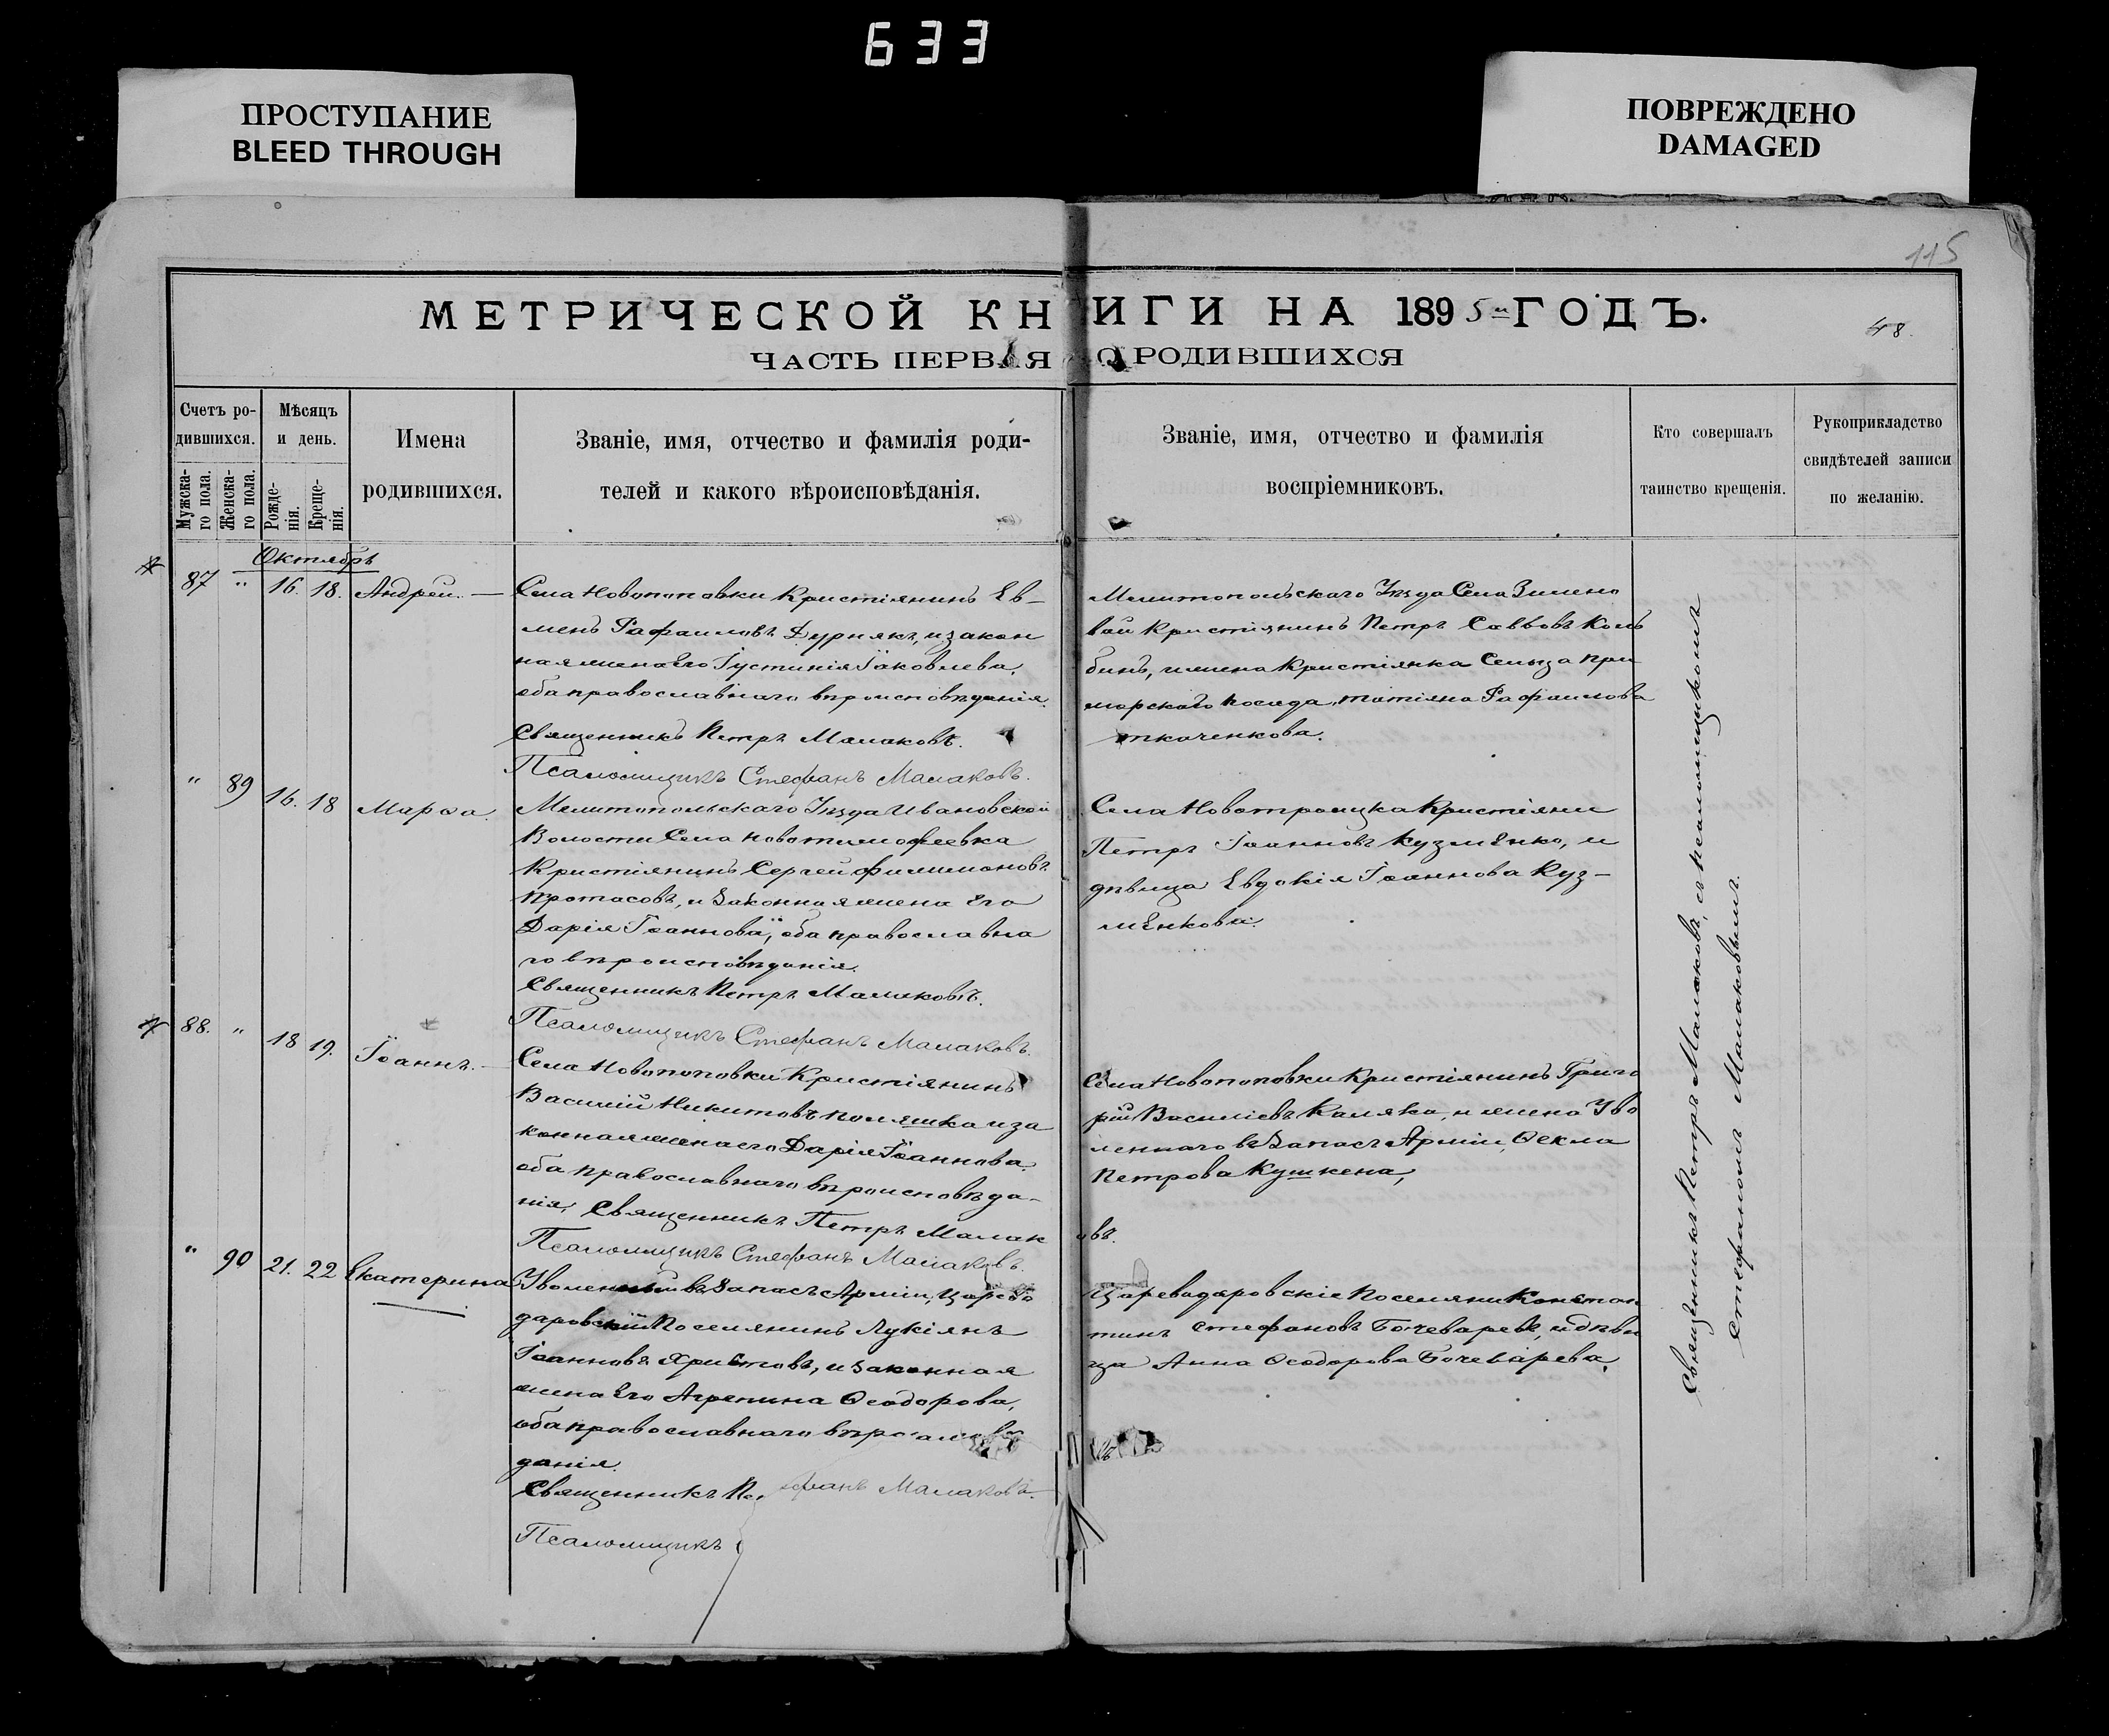 633
ПРОСТУПАНИЕ
BLEED THROUGH
ПОВРЕЖДЕНО
DAMAGED
115
МЕТРИЧЕСКОЙ КНИГИ НА 1895 й ГОДЪ.
48.
ЧАСТЬ ПЕРВАЯ О РОДИВШИХСЯ
Счетъ ро-
дившихся.
Мужска-
го пола.
Женска-
го пола.
Мѣсяцъ
и день.
Рожде-
нія.
Креще-
нія.
Имена
родившихся.
Званіе, имя, отчество и фамилія роди-
телей и какого вѣроисповѣданія.
Званіе, имя, отчество и фамилія
воспріемниковъ.
Кто совершалъ
таинство крещенія.
Рукоприкладство
свидѣтелей записи
по желанію.
Октябрь
87 " 16. 18. Андрей. —
Села Новопоповки Кристіянинъ Ев-
менъ Рафаиловъ Дурнякъ, и закон
ная жена Его Іустинія Іаковлева,
оба православнаго вѣроисповѣданія.
Священникъ Петръ Малаковъ.
Псаломщикъ Стефанъ Малаковъ.
Мелитопольскаго Уѣзда Села Зелено
вой Кристіянинъ Петръ Саввовъ Кол
бинъ, и жена Кристіянка Сельца При
морскаго посада, татіяна Рафаилова
ткаченкова.
" 89 16. 18 Марѳа.
Мелитопольскаго Уѣзда Ивановской
Волости Села Новотимофеевка
Кристіянинъ Сергей Филимоновъ
Протасовъ, и Законная жена Его
Дарія Іоаннова, оба православна
го вѣроисповѣданія.
Священникъ Петръ Малаковъ.
Псаломщикъ Стефанъ Малаковъ.
Села Новотроицка Кристіяни
Петръ Іоанновъ Кузмѣнко, и
дѣвица Евдокія Іоаннова Куз-
мѣнкова.
88. " 18 19. Іоаннъ. —
Села Новопоповки Кристіянинъ
Василій Никитовъ поляшка и за
конная жена его Дарія Іоаннова
оба православнаго вѣроисповѣда-
нія, Священникъ Петръ Малаковъ.
Псаломщикъ Стефанъ Малаковъ.
Села Новопоповки Кристіянинъ Григо
рій Василіевъ Каляка, и жена Уво
леннаго въ Запасъ Арміи, Ѳекла
Петрова Кушкена,
" 90 21. 22 Екатерина
Уволенный въ Запасъ Арміи, Царево
даровскій Поселянинъ Лукіянъ
Іоанновъ Христовъ, и законная
жена Его Агрепина Ѳеодорова,
оба православнаго вѣроисповѣ
данія.
Священникъ Пе
Псаломщикъ Стефанъ Малаковъ.
Цареводаровскіе Поселяни Констан
тинъ Стефановъ Бочеваревъ, и дѣви
ца Анна Ѳеодорова Бочеварева.
Священникъ Петръ Малаковъ, съ псаломщикомъ
Стефаномъ Малаковымъ.